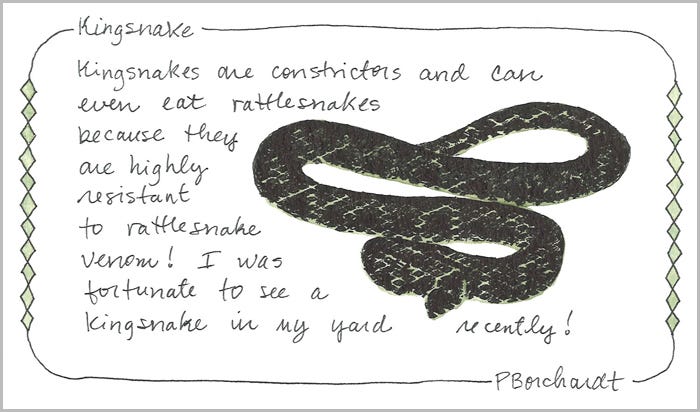 Kingsnake
Kingsnakes are constrictors and can
even eat rattlesnakes
because they
are highly
resistant
to rattlesnake
venom! I was
fortunate to see a
kingsnake in my yard recently!
PBorchardt